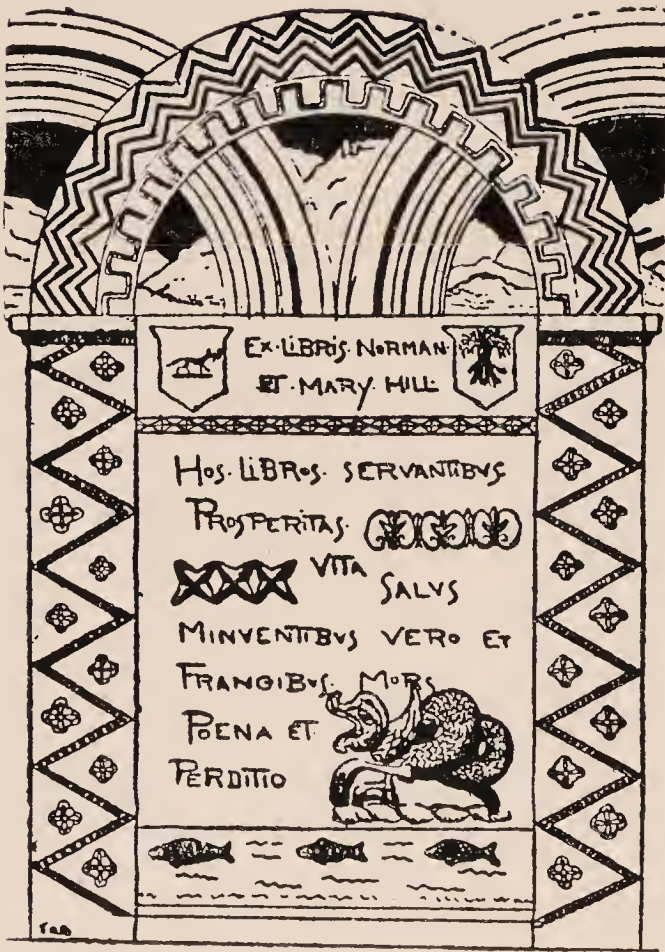 EX·LIBRIS·NORMAN·
ET·MARY·HILL·
HOS·LIBROS·SERVANTIBVS
PROSPERITAS·
VITA
SALVS
MINVENTIBVS VERO ET
FRANGIBVS·MORS
POENA ET
PERDITIO